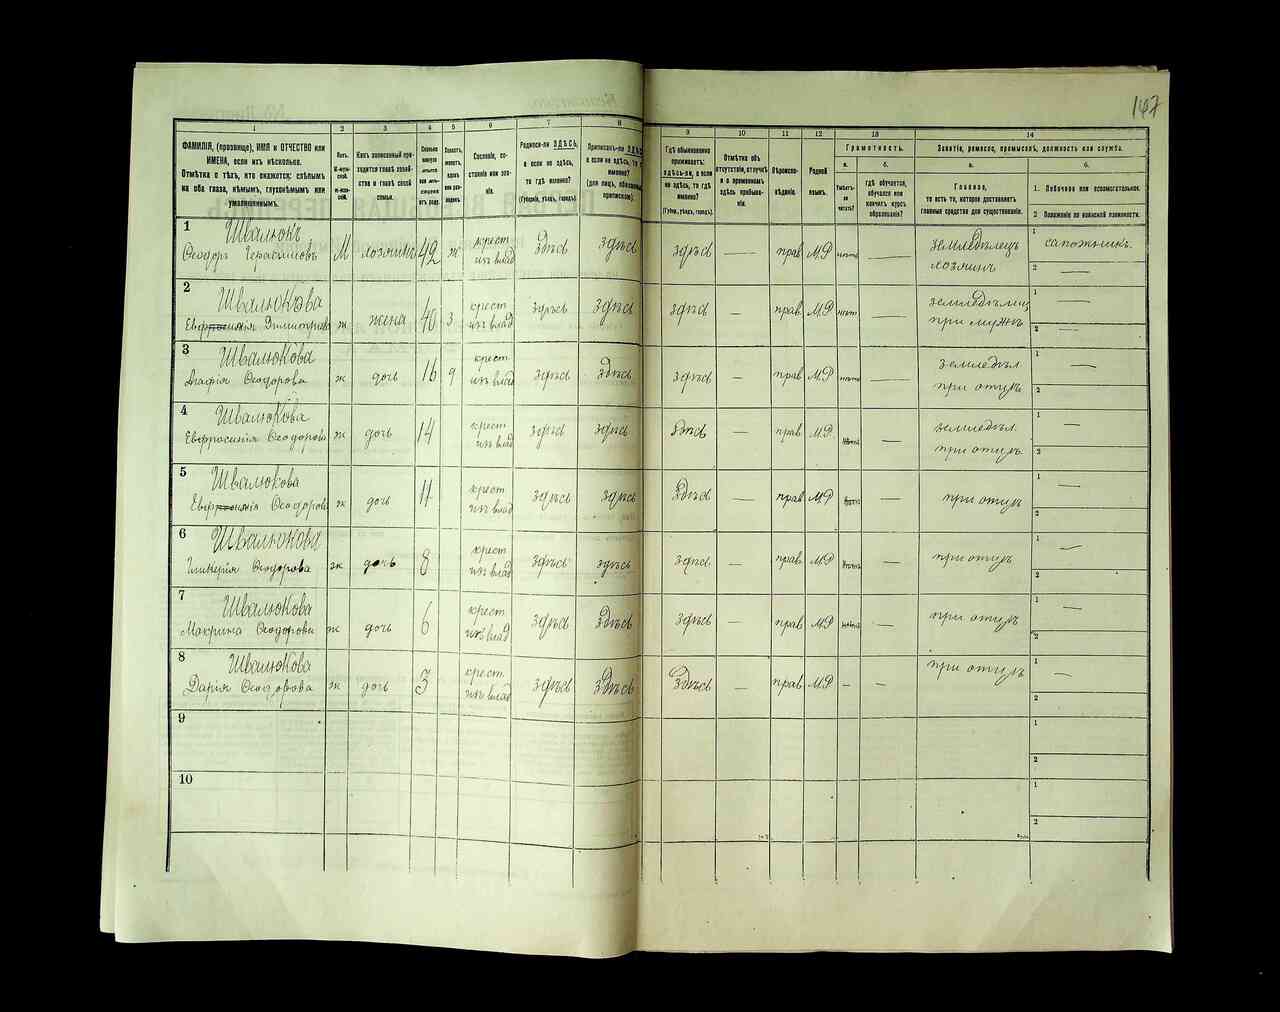 147
1
2
3
4
5
6
7
8
9
10
11
12
13
14
ФАМИЛІЯ, (прозвище), ИМЯ и ОТЧЕСТВО или
ИМЕНА, если ихъ нѣсколько.
Отмѣтка о тѣхъ, кто окажется: слѣпымъ
на оба глаза, нѣмымъ, глухонѣмымъ или
умалишеннымъ.
Полъ.
М-муж-
ской.
Ж-жен-
скій.
Какъ записанный при-
ходится главѣ хозяй-
ства и главѣ своей
семьи.
Сколько
минуло
лѣтъ
отъ роду.
Сословіе, со-
стояніе или зва-
ніе.
Родился-ли ЗДѢСЬ,
а если не здѣсь,
то гдѣ именно?
(Губернія, уѣздъ, городъ).
Приписанъ-ли ЗДѢСЬ
а если не здѣсь, то гдѣ
именно?
Гдѣ обыкновенно
проживаетъ:
здѣсь-ли, а если
не здѣсь, то гдѣ
именно?
(Губер., уѣздъ, городъ).
Отмѣтка объ
отсутствіи, отлучкѣ
и о временномъ
здѣсь пребыва-
ніи.
Вѣроиспо-
вѣданіе.
Родной
языкъ.
Грамотность.
а.
Умѣетъ-
ли
читать?
б.
гдѣ обучается,
обучался или
кончилъ курсъ
образованія?
Занятіе, ремесло, промыселъ, должность или служба.
а.
Главное,
то есть то, которое доставляетъ
главныя средства для существованія.
б.
1. Побочное или вспомогательное.
2 Положеніе по воинской повинности.
1
Швалюкъ
Ѳеодоръ Герасимовъ М хозяинъ 42 ж крест изъ влад здѣсь здѣсь здѣсь — прав М.Р нѣтъ — земледѣлецъ хозяинъ 1 сапожникъ. 2 —
2
Швалюкова
ж жена 40 3 крест изъ влад здѣсь здѣсь здѣсь — прав М.Р нѣтъ — при мужѣ 1 — 2 —
3
Швалюкова
Агафія Ѳеодорова ж дочь 16 9 крест изъ влад здѣсь здѣсь здѣсь — прав М.Р нѣтъ — земледѣл при отцѣ 1 — 2
4
Швалюкова
Евфросинія Ѳеодорова ж дочь 14 крест изъ влад здѣсь здѣсь здѣсь — прав М.Р. — земледѣл при отцѣ 1 — 2
5
Швалюкова
Ѳеодорова ж дочь 11 крест изъ влад здѣсь здѣсь здѣсь — прав М.Р — при отцѣ 1 — 2
6
Швалюкова
Ѳеодорова ж дочь 8 крест изъ влад здѣсь здѣсь здѣсь — прав М.Р — при отцѣ 1 — 2
7
Швалюкова
Макрина Ѳеодорова ж дочь 6 крест изъ влад здѣсь здѣсь здѣсь — прав М.Р — при отцѣ 1 — 2
8
Швалюкова
Дарія Ѳеодорова ж дочь 3 крест изъ влад здѣсь здѣсь здѣсь — прав М.Р – – при отцѣ 1 — 2
9
1
2
10
1
2